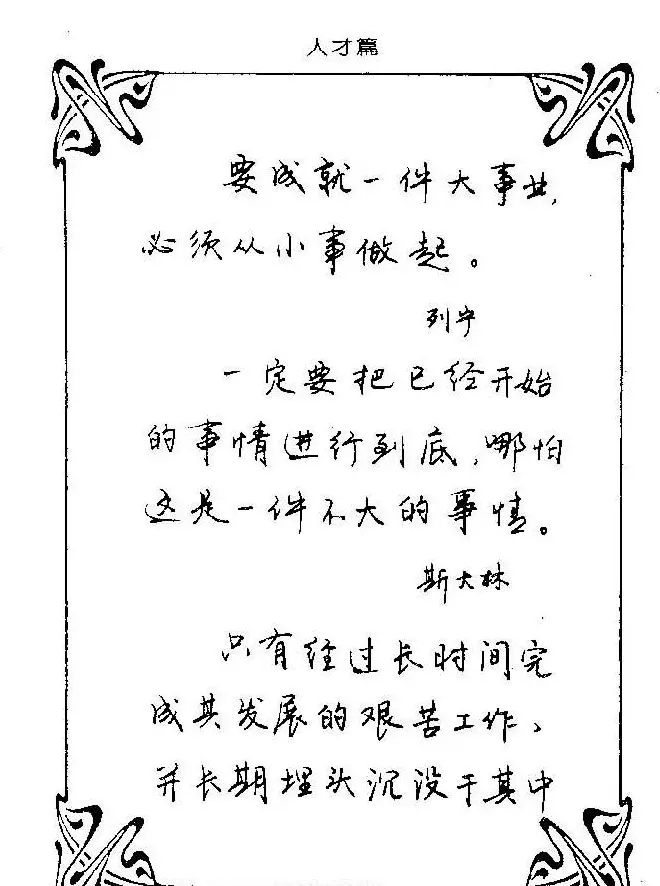 人才篇
要成就一件大事业,
必须从小事做起。
列宁
一定要把已经开始
的事情进行到底,哪怕
这是一件不大的事情。
斯大林
只有经过长时间完
成其发展的艰苦工作、
并长期埋头沉没于其中